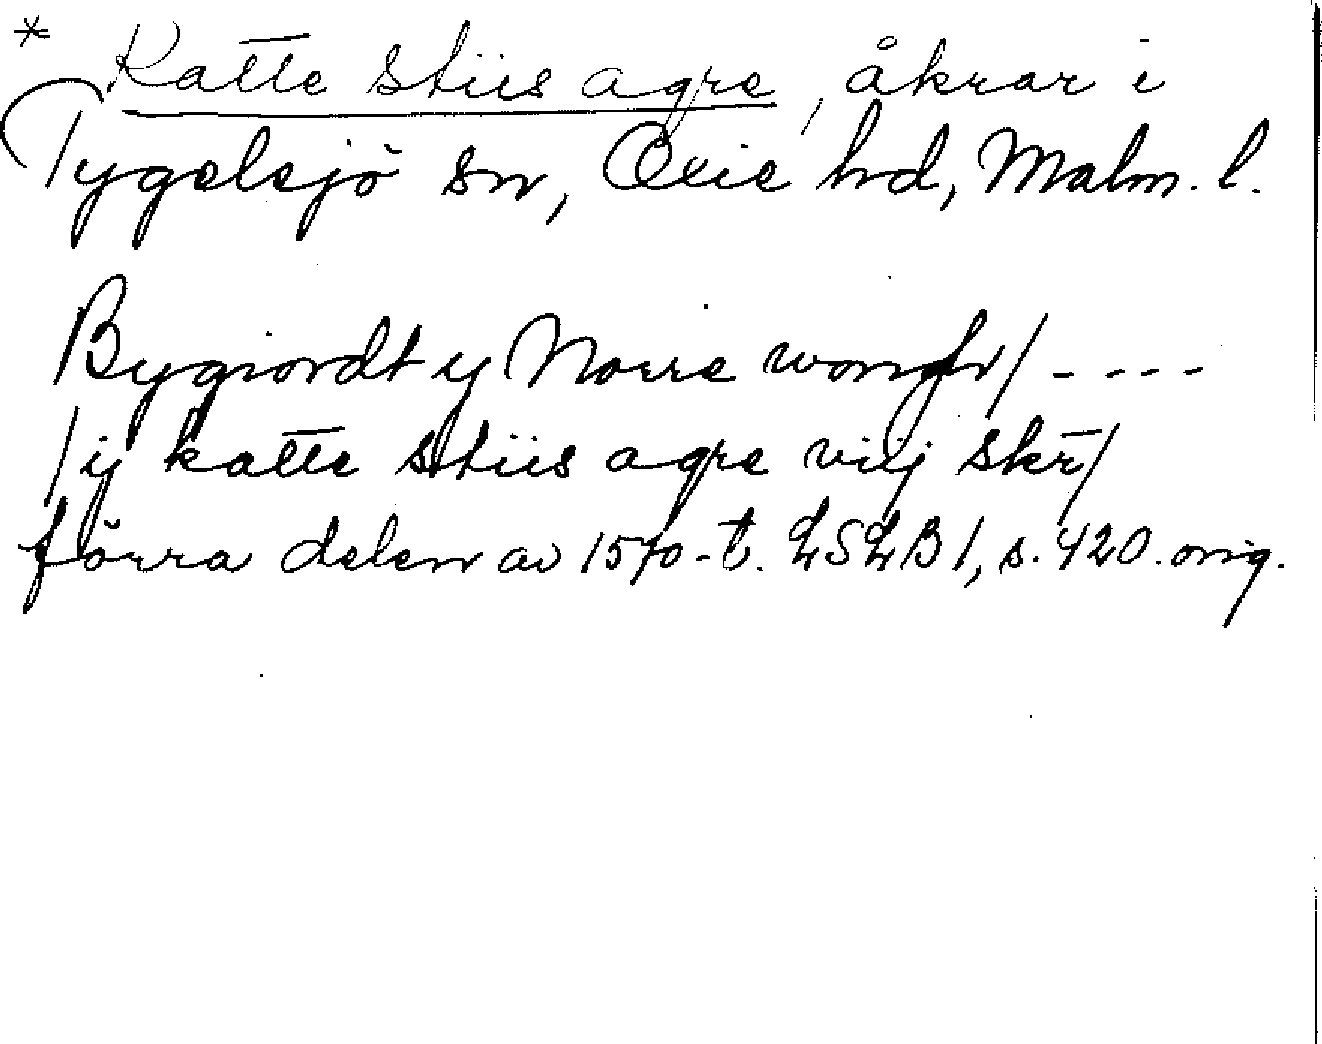 * Katte stiis agre, åkrar i
Tygelsjö sn, Oxie hd, Malm. l.
Bygiordt y Norre wongh/ ----
/ij katte stiis agre viij skr̄/
förra delen av 1570-t. LSLB1, s. 420. orig.